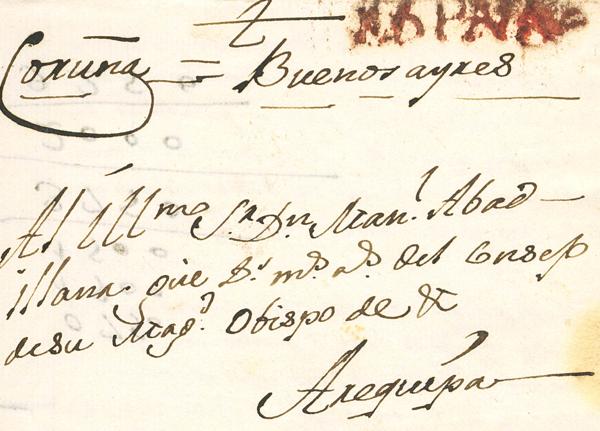 ESPAÑA
Coruña = Buenos ayres
Al Illmo Sr. Dn. Man.l Abad
illana que Ds. ms. as. del Consejo
de su Mag.d Obispo de &
Arequipa